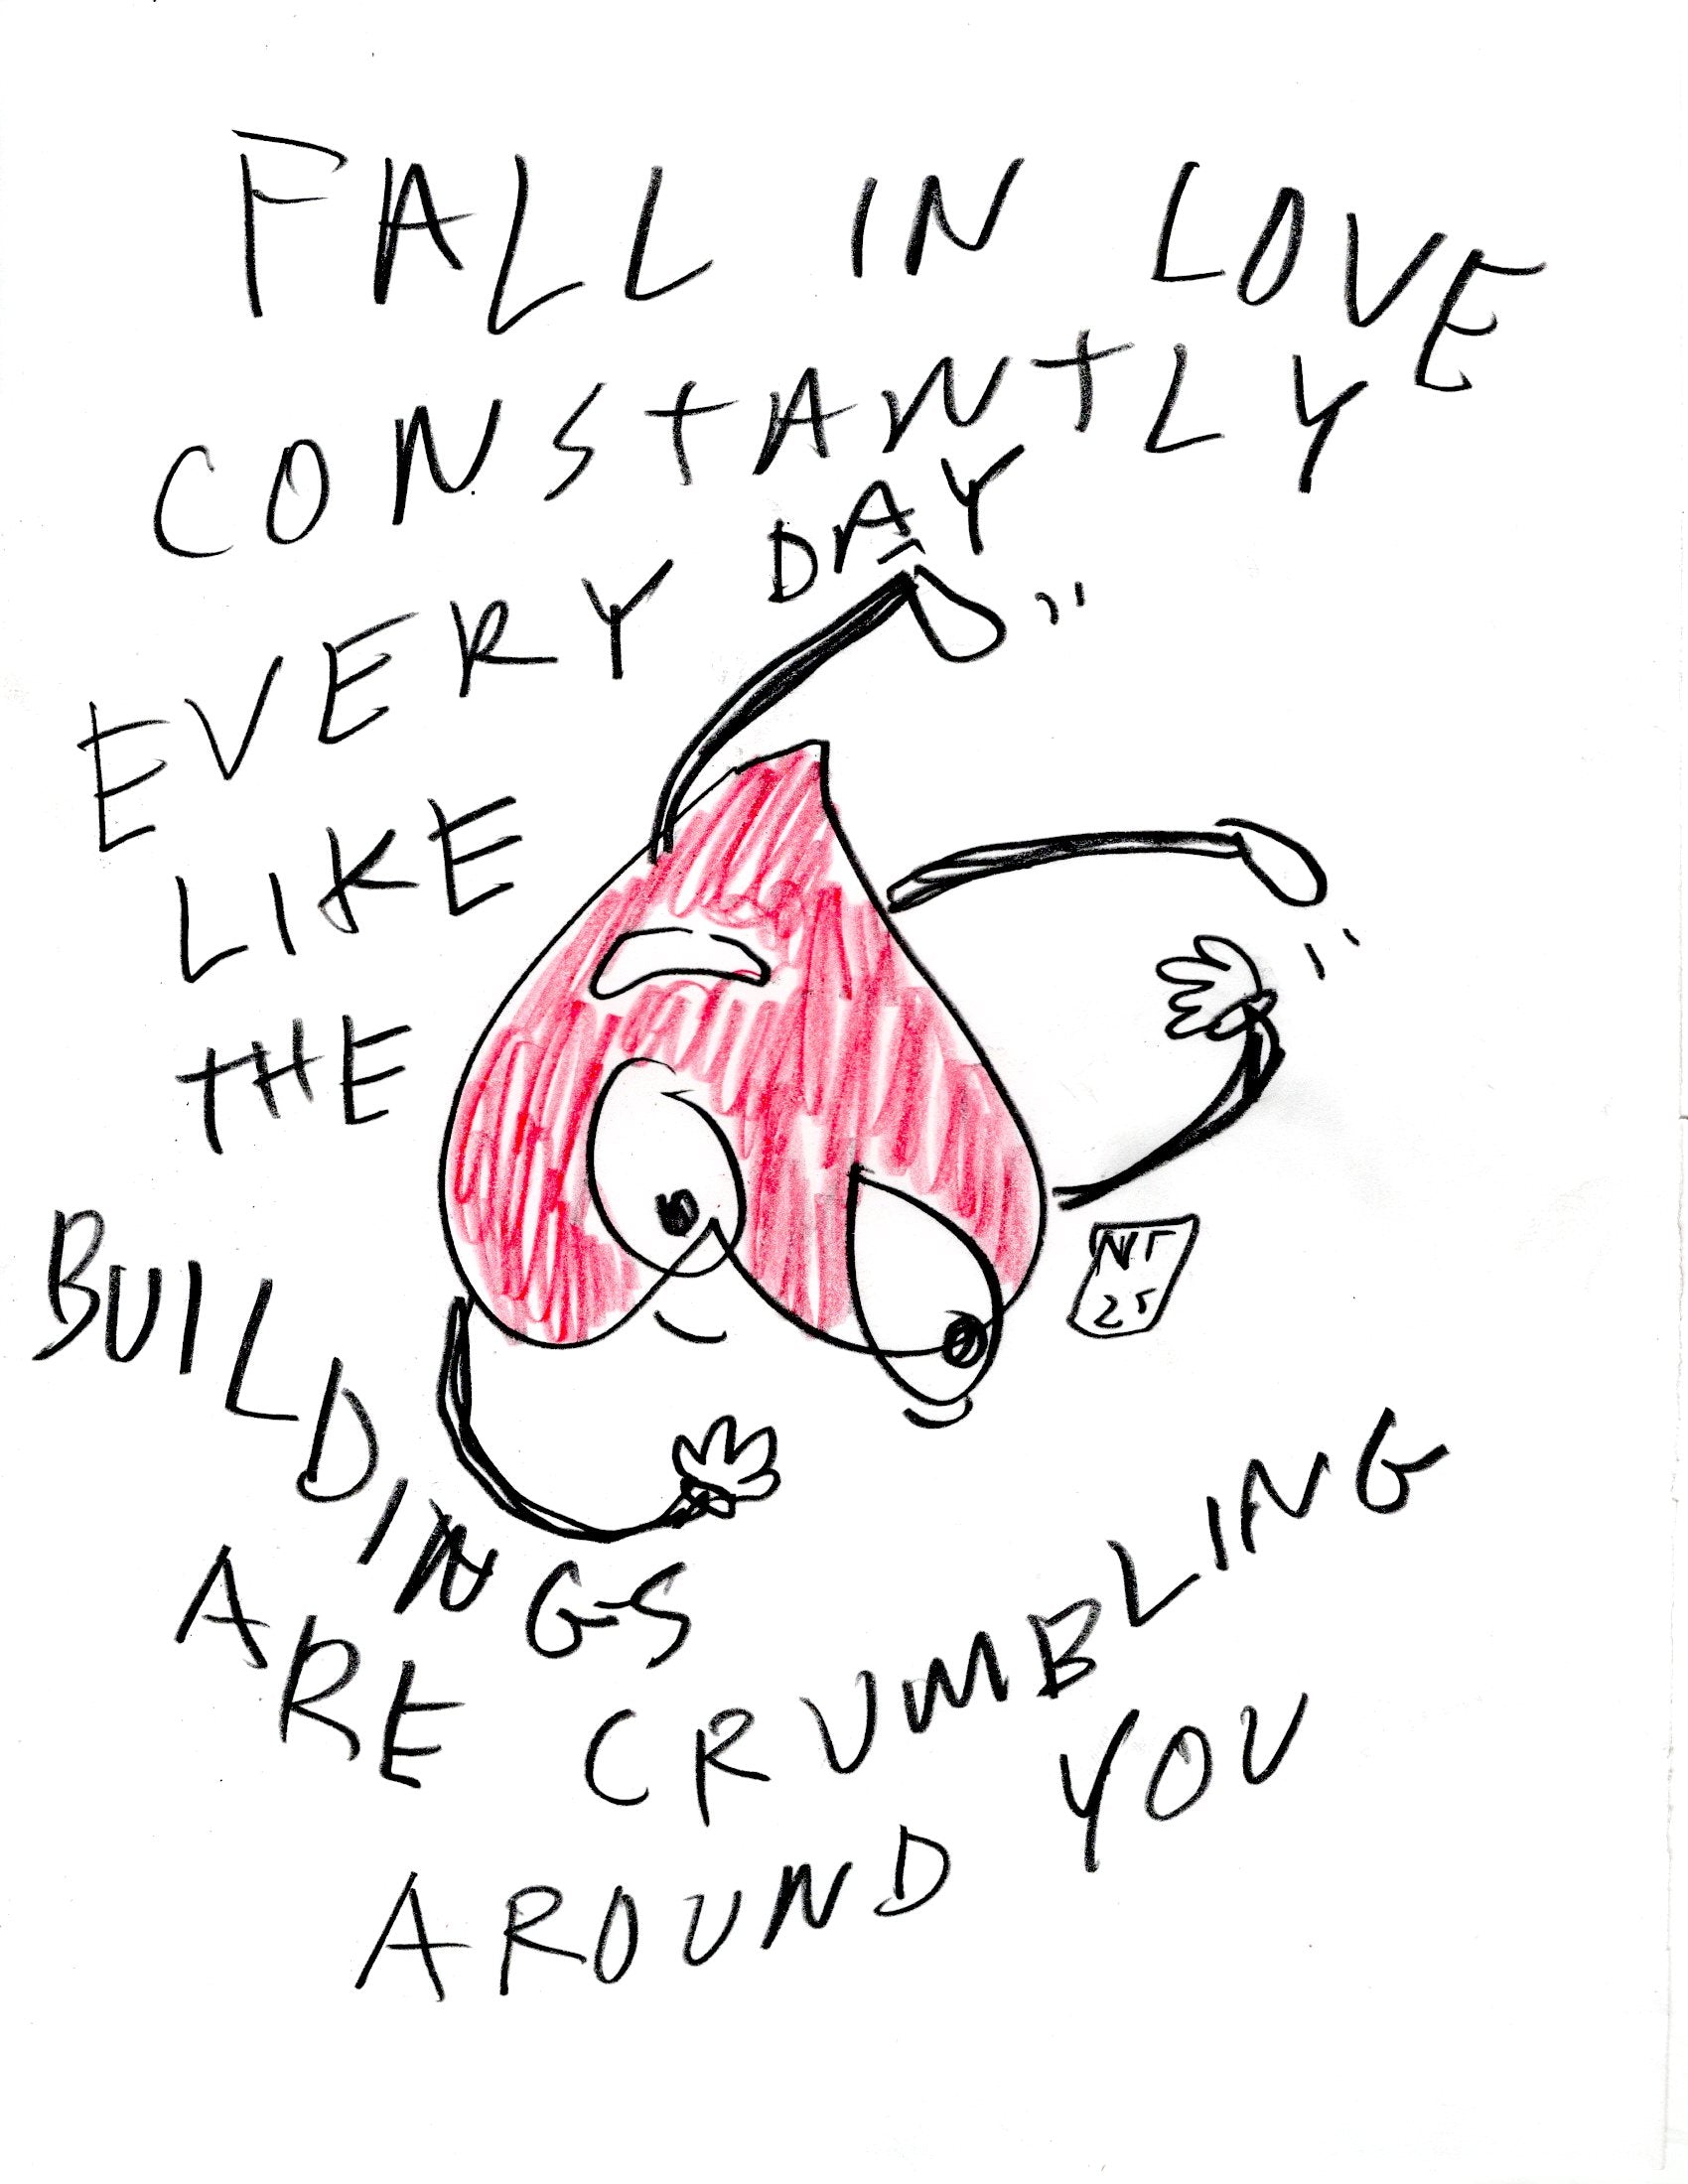 FALL IN LOVE
CONSTANTLY
EVERY DAY
LIKE
THE
BUILDINGS
ARE CRUMBLING
AROUND YOU
NT
25